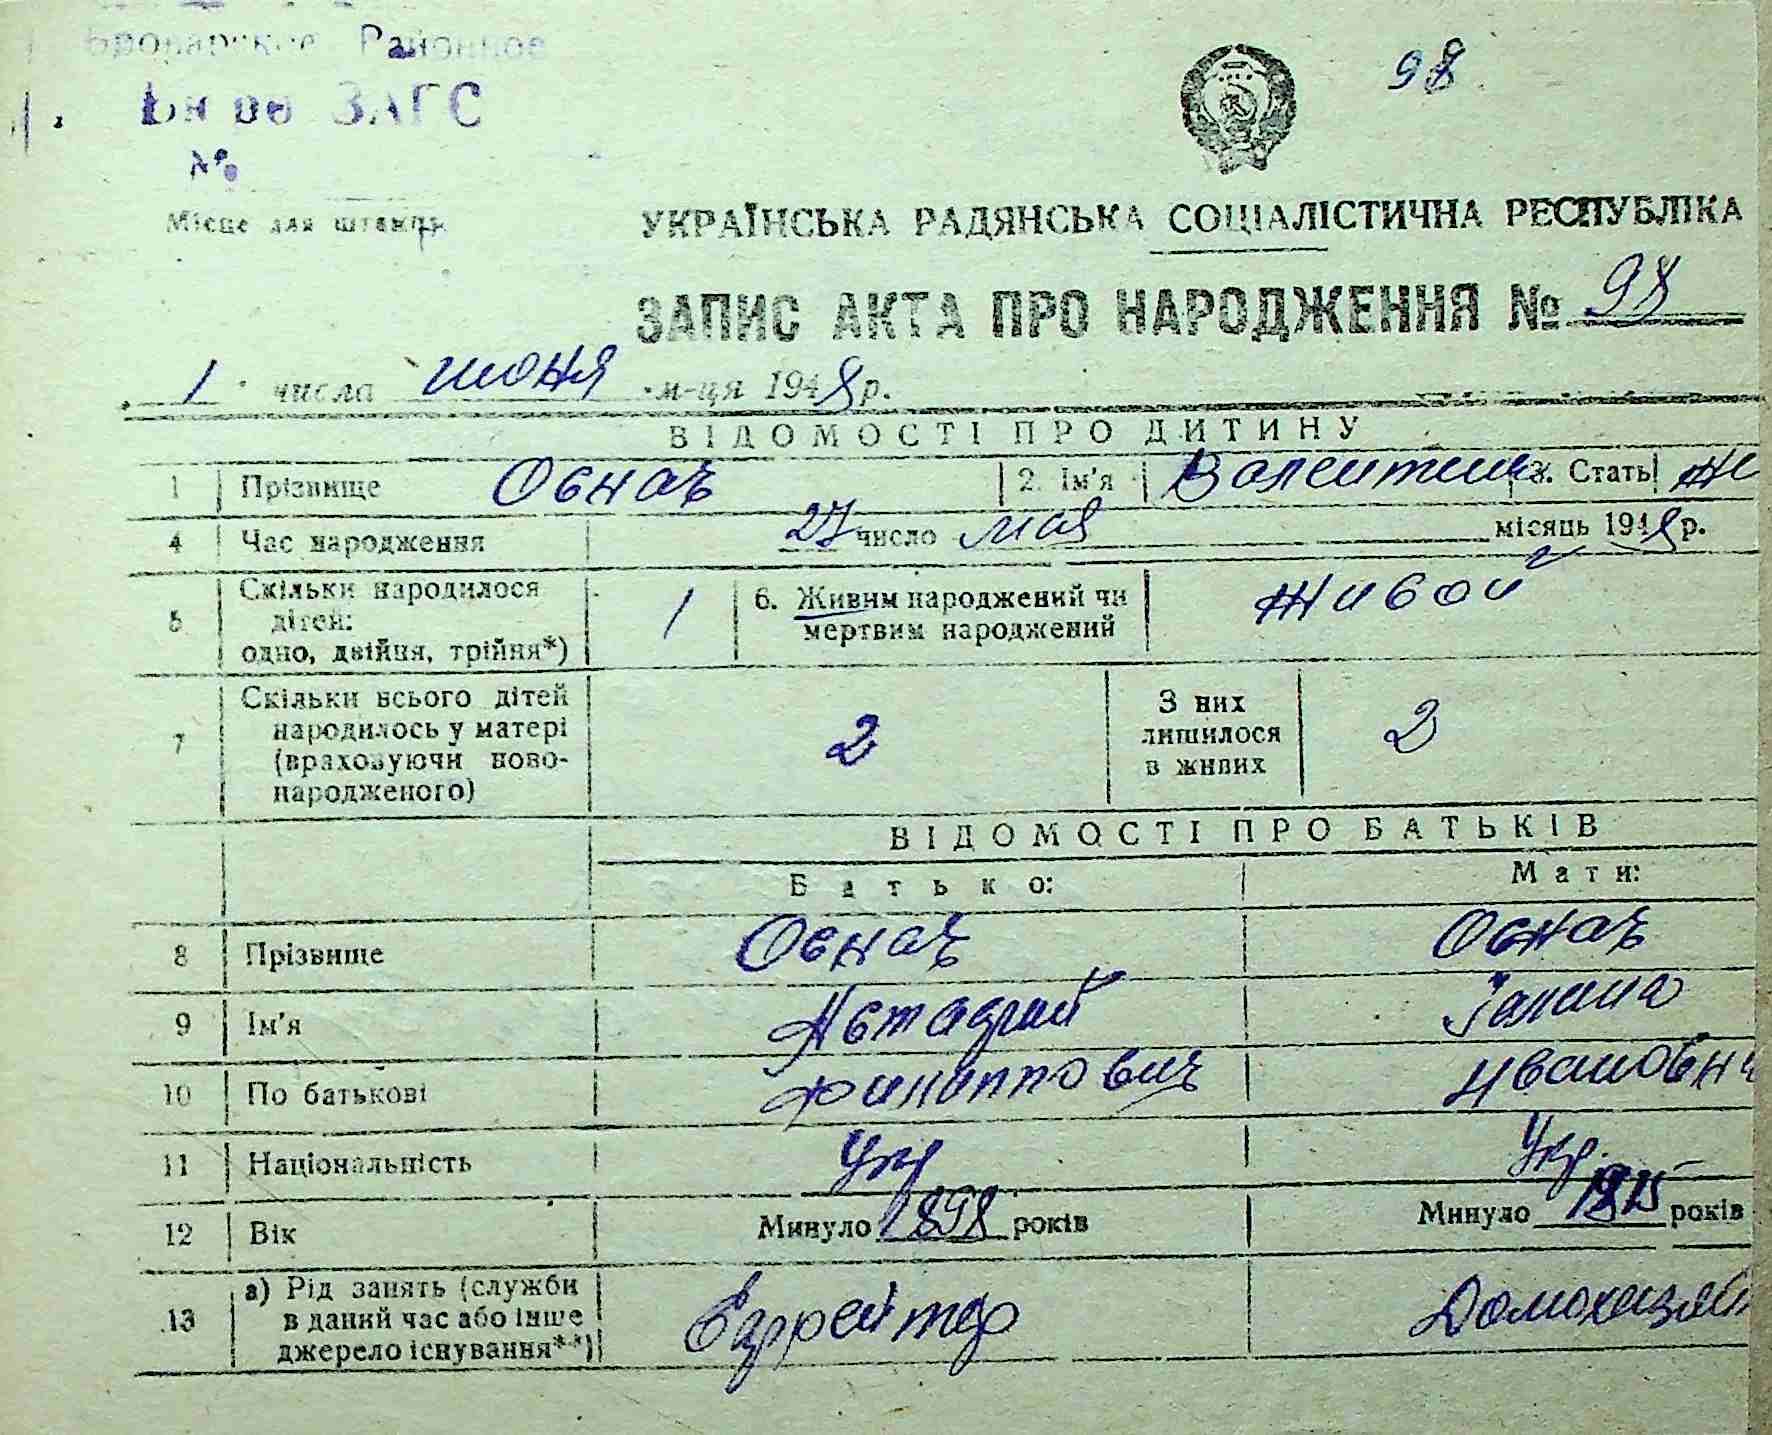 Броварское Районное 98
Бюро ЗАГС
№
Місце для штампу УКРАЇНСЬКА РАДЯНСЬКА СОЦІАЛІСТИЧНА РЕСПУБЛІКА
ЗАПИС АКТА ПРО НАРОДЖЕННЯ № 98
1 числа июня м-ця 1948 р.
ВІДОМОСТІ ПРО ДИТИНУ
1 Прізвище Оснач 2. Ім'я Валентина 3. Стать Же
4 Час народження 27 число мая місяць 1948 р.
5 Скільки народилося дітей: одно, двійня, трійня*) 1 6. Живим народжений чи мертвим народжений Живой
7 Скільки всього дітей народилось у матері (враховуючи ново-народженого) 2 З них лишилося в живих 2
ВІДОМОСТІ ПРО БАТЬКІВ
Батько: Мати:
8 Прізвище Оснач Оснач
9 Ім'я Галина
10 По батькові Филиппович Ивановн
11 Національність Укр Укр.
12 Вік Минуло 1898 років Минуло років
13 а) Рід занять (служби в даний час або інше джерело існування**) Ефрейтор Домохозяй